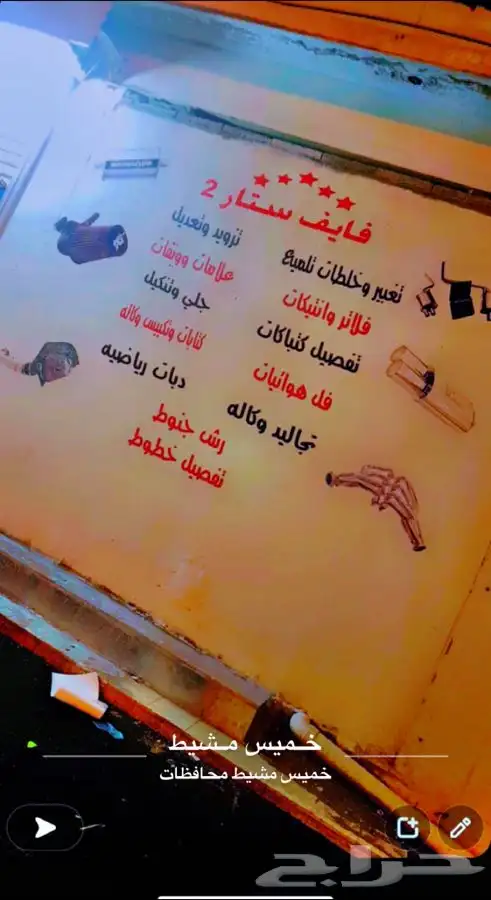 فايف ستار 2
تعبير وخلطات تلميع
فلاتر وانتيكات
تفصيل كتباكات
فل هوائيات
تجاليد وكاله
تزويد وتعديل
علامات وويقات
جلي وتنكيل
كتابات وتكبيس وكاله
دبات رياضيه
رش جنوط
تفصيل خطوط
خميس مشيط
خميس مشيط محافظات
حراج